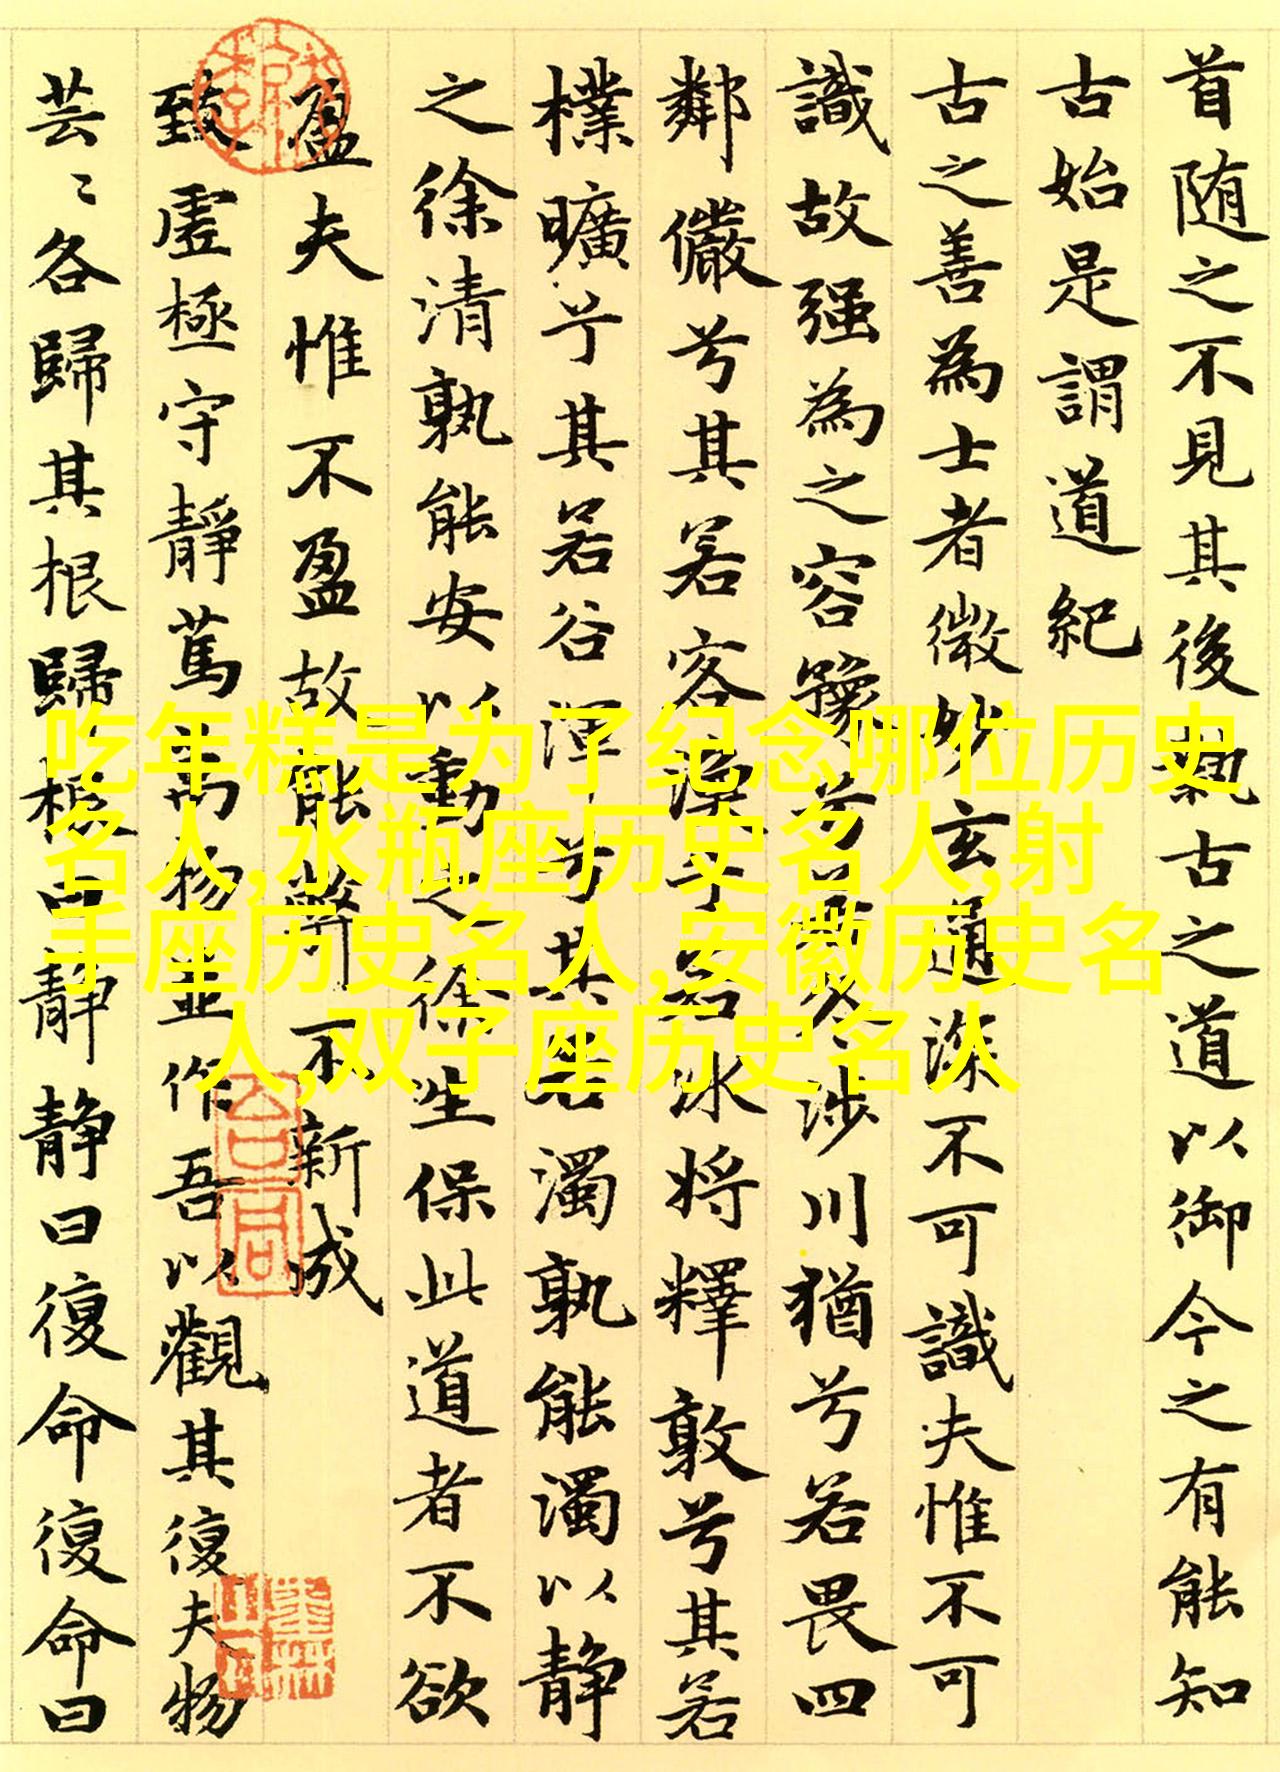 首随之不見其後執古之道以御今之有能知
古始是謂道紀
古之善為士者微妙玄通深不可識夫惟不可
識故强為之容豫兮若冬涉川猶兮若畏四
鄰儼兮其若客渙乎若冰将釋敦兮其若
樸曠兮其若谷渾兮其若濁孰能濁以静
之徐清孰能安以動之徐生保此道者不欲
盈夫惟不盈故能弊不新成
致虛極守靜篤萬物並作吾以觀其復夫物
芸〻各歸其根歸根曰静静曰復命復命曰
吃年糕是为了纪念哪位历史
名人,水瓶座历史名人,射
手座历史名人,安徽历史名
人,双子座历史名人